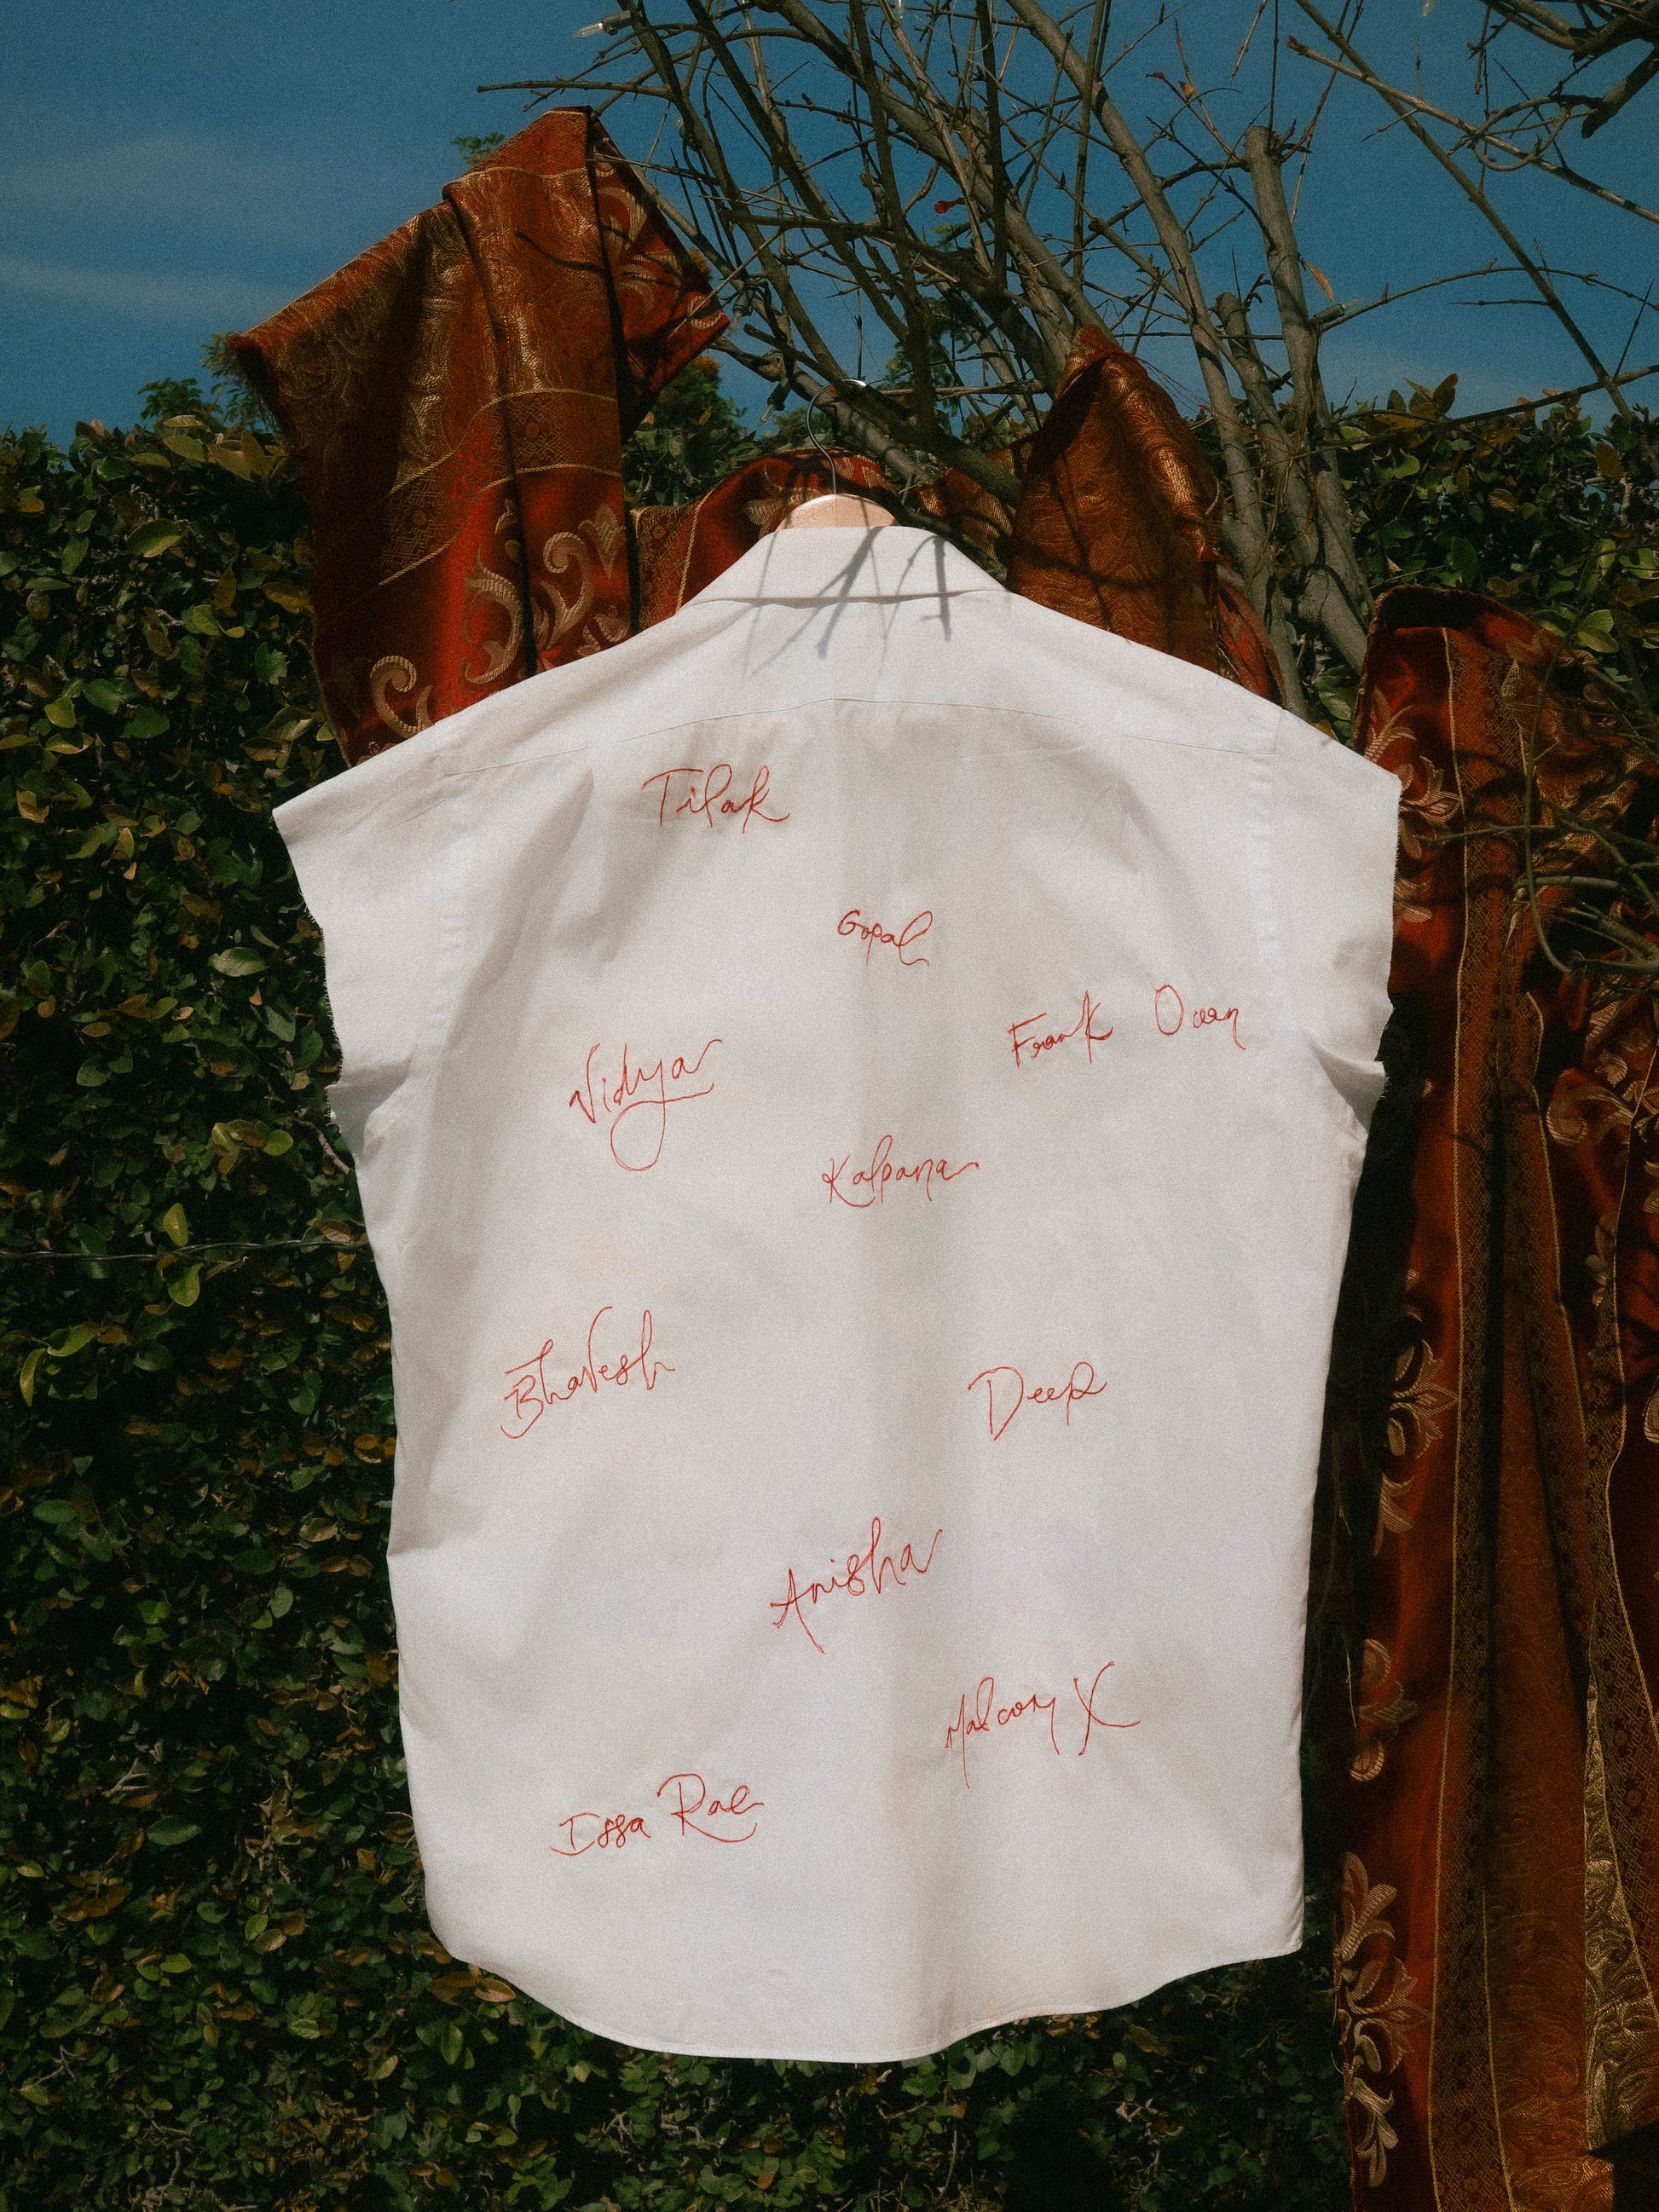 Tilak
Gopal
Frank Ocean
Vidya
Kalpana
Bhavesh
Deep
Anisha
Malcom X
Issa Rae